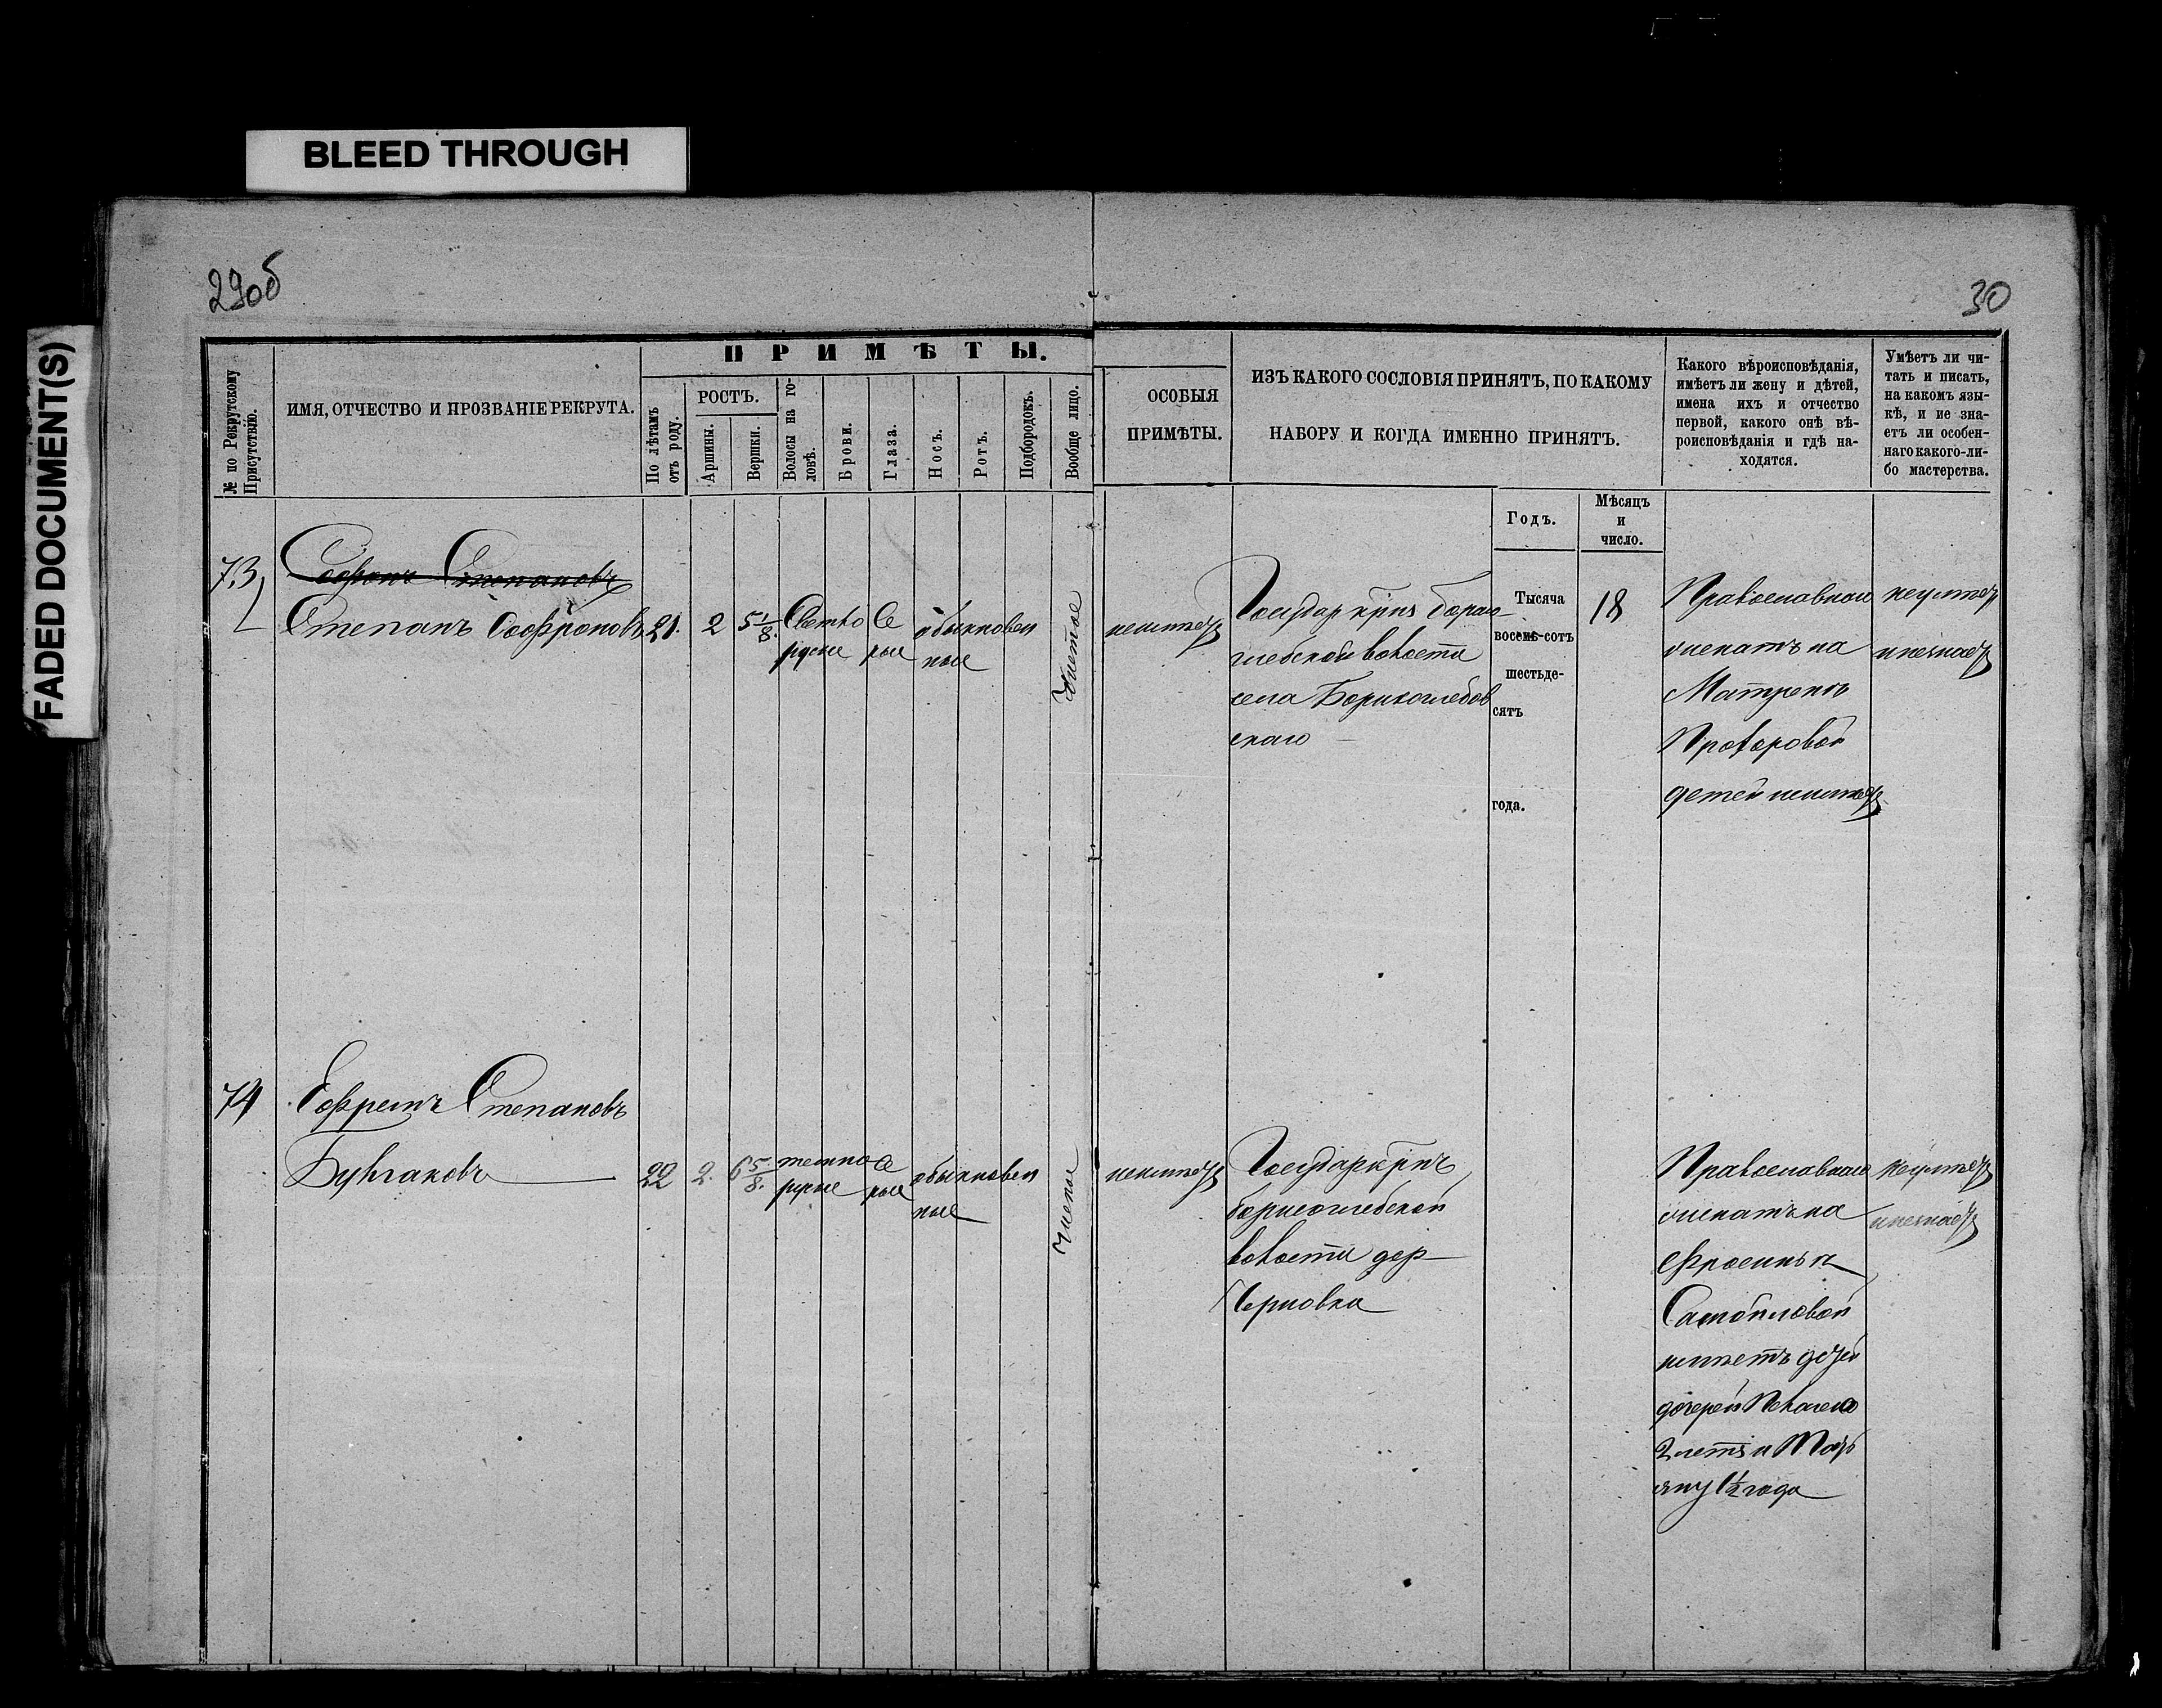 BLEED THROUGH
FADED DOCUMENT(S)
29об
30
ПРИМѢТЫ.
№ по Рекрутскому
Присутствію.
ИМЯ, ОТЧЕСТВО И ПРОЗВАНІЕ РЕКРУТА.
По лѣтамъ
отъ роду.
РОСТЪ.
Аршины.
Вершки.
Волосы на го-
ловѣ.
Брови.
Глаза.
Носъ.
Ротъ.
Подбородокъ.
Вообще лицо.
ОСОБЫЯ
ПРИМѢТЫ.
ИЗЪ КАКОГО СОСЛОВІЯ ПРИНЯТЪ, ПО КАКОМУ
НАБОРУ И КОГДА ИМЕННО ПРИНЯТЪ.
Годъ.
Мѣсяцъ
и
число.
Какого вѣроисповѣданія,
имѣетъ ли жену и дѣтей,
имена ихъ и отчество
первой, какого онѣ вѣ-
роисповѣданія и гдѣ на-
ходятся.
Умѣетъ ли чи-
тать и писать,
на какомъ язы-
кѣ, и не зна-
етъ ли особен-
наго какого-ли-
бо мастерства.
73
Софронъ Степановъ
Степанъ Софроновъ
21.
2
5 1/8
Светло
русые
Се
рые
обыкновен
ные
Чистое
неимѣетъ
Государ крпъ
глебской волости
села Борисоглебов
скаго
Тысяча
восемь-сотъ
шестьде-
сятъ
года.
18
Православнаго
женатъ на
Матренѣ
Прохоровой
детей неимѣетъ
неумѣетъ
инезнаетъ
74
Ефремъ Степановъ
Булгаковъ
22
2.
6 5/8.
темно
русые
Се
рые
обыкновен
ные
неимѣетъ
Государ крпъ
борисоглебской
волости дер
Черновка
Православнаго
женатъ на
Ефросиньи
имѣетъ детей
дочерей Пелагею
2 летъ и Марь
яну 1½ года
неумѣетъ
инезнаетъ